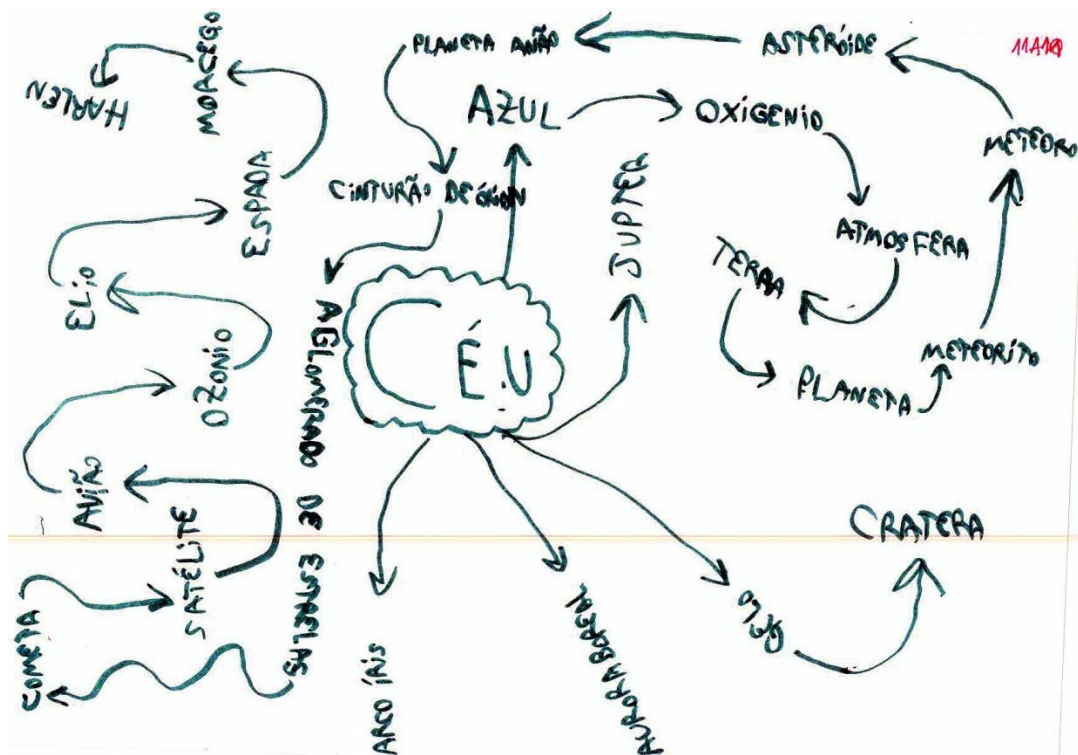 CÉU
AZUL
OXIGENIO
ATMOSFERA
TERRA
PLANETA
METEORITO
METEORO
ASTERÓIDE
PLANETA ANÃO
CINTURÃO DE ÓRION
AGLOMERADO DE ESTRELAS
COMETA
SATÉLITE
AVIÃO
OZONIO
ELIO
ESPADA
MORCEGO
HARLEN
JUPTER
GELO
CRATERA
AURORA BOREAL
ARCO ÍRIS